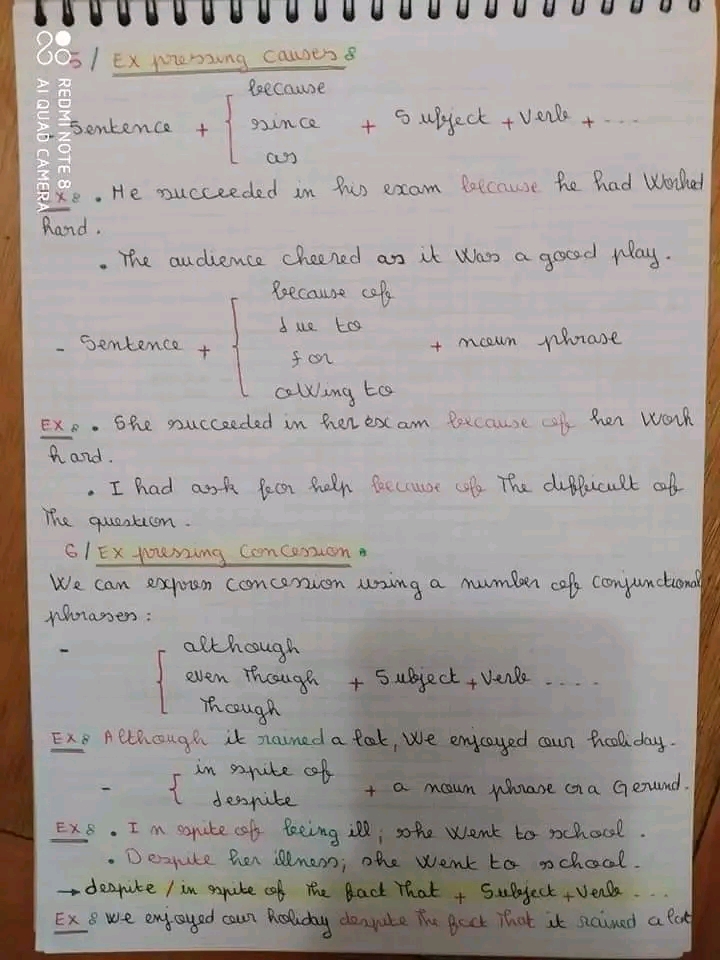 5/ Expressing causes:
because
- Sentence + since + Subject + Verb + ...
as
Ex: . He succeeded in his exam because he had Worked
hard.
. The audience cheered as it Was a good play.
because of
due to
- Sentence + for + noun phrase
owing to
Ex: . She succeeded in her exam because of her Work
hard.
. I had ask for help because of The difficult of
The question.
6/ Expressing Concession:
We can express concession using a number of conjunctional
phrases:
- although
even Though + Subject + Verb ....
Though
Ex: Although it rained a lot, We enjoyed our holiday.
in spite of
- despite + a noun phrase or a Gerund.
Ex: . In spite of being ill; she Went to school.
. Despite her illness; she Went to school.
→ despite / in spite of The fact That + Subject + Verb ...
Ex: We enjoyed our holiday despite The fact That it rained a lot
REDMI NOTE 8
AI QUAD CAMERA